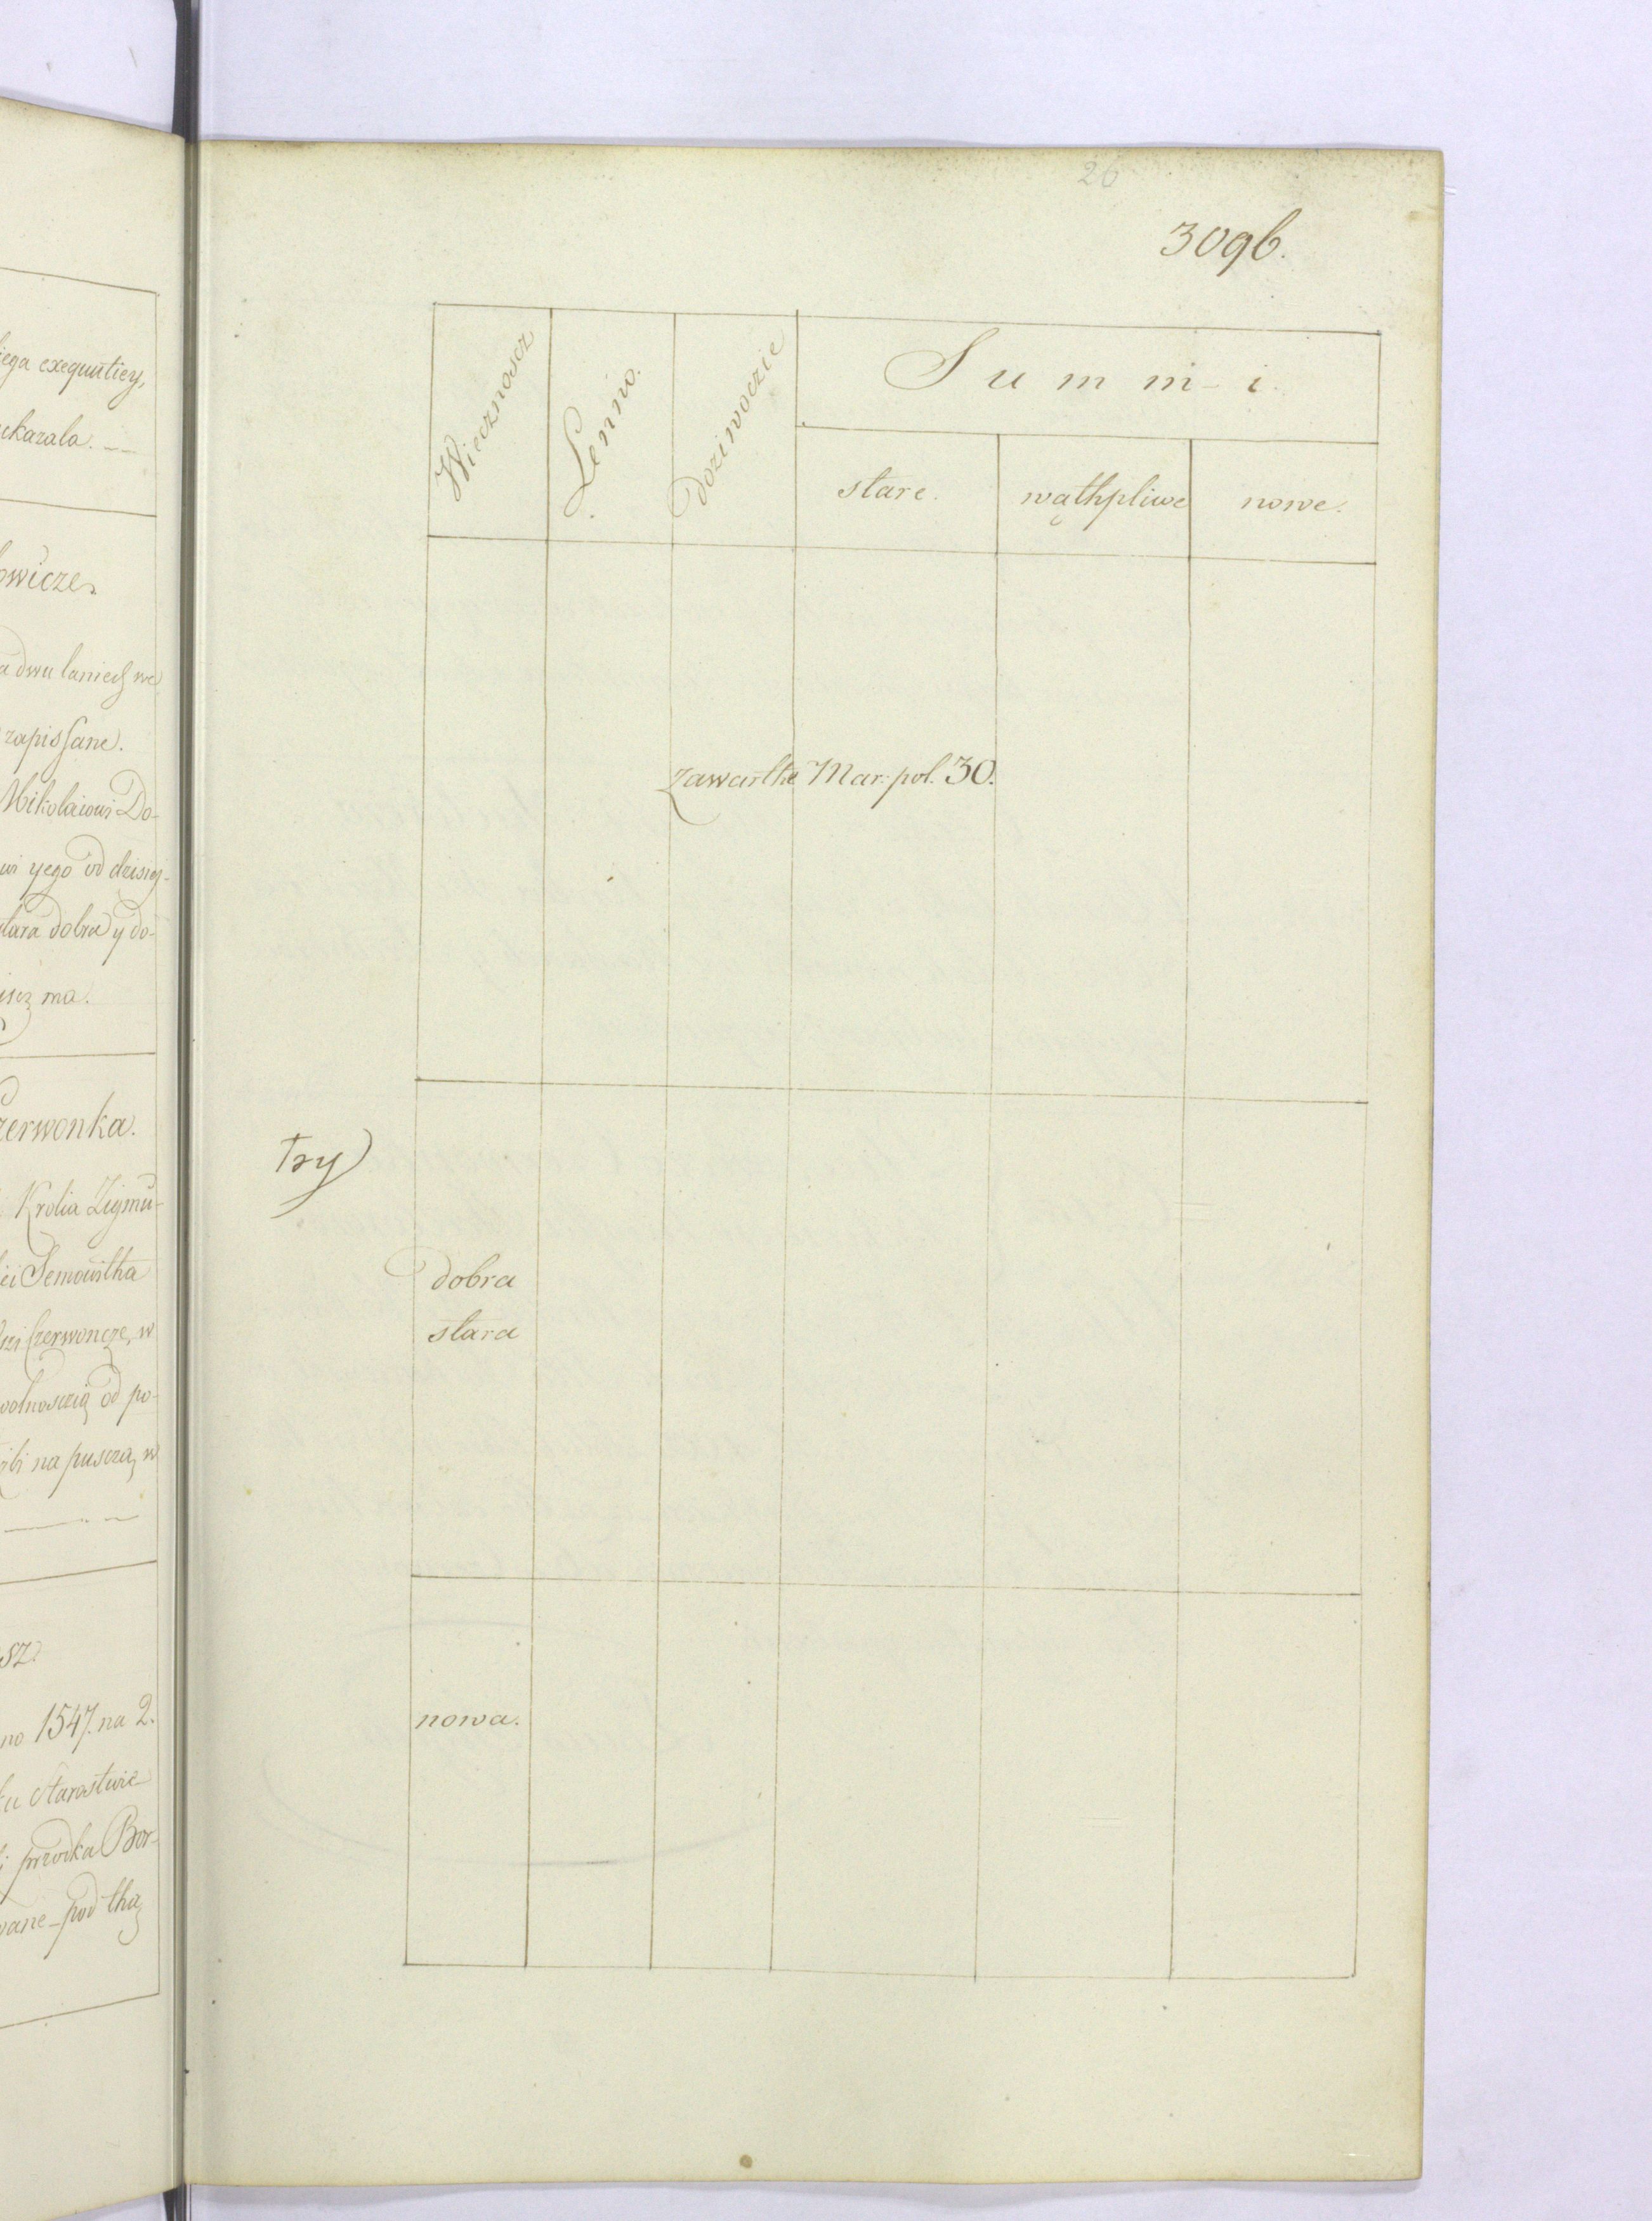 iega exequutiey,
ukazala.
owicze.
a dwu laniech we
zapissane.
Mikolaiowi Do-
wi yego od dzisiej-
stara dobra y do-
ma.
Czerwonka.
Krolia Zigmu-
Semowitha
Czerwoncze, w
wolnosczią od po-
na pusczą, w
sz
no 1547. na 2.
tu Starostwie
przodka Bor-
wane pod thą
26
309b.
Wiecznoscz
Lenno.
Doziwoczie
Summi.
stare.
wąthpliwe
nowe.
zawarthe Mar: pol. 30.
try
dobra
stara
nowa.